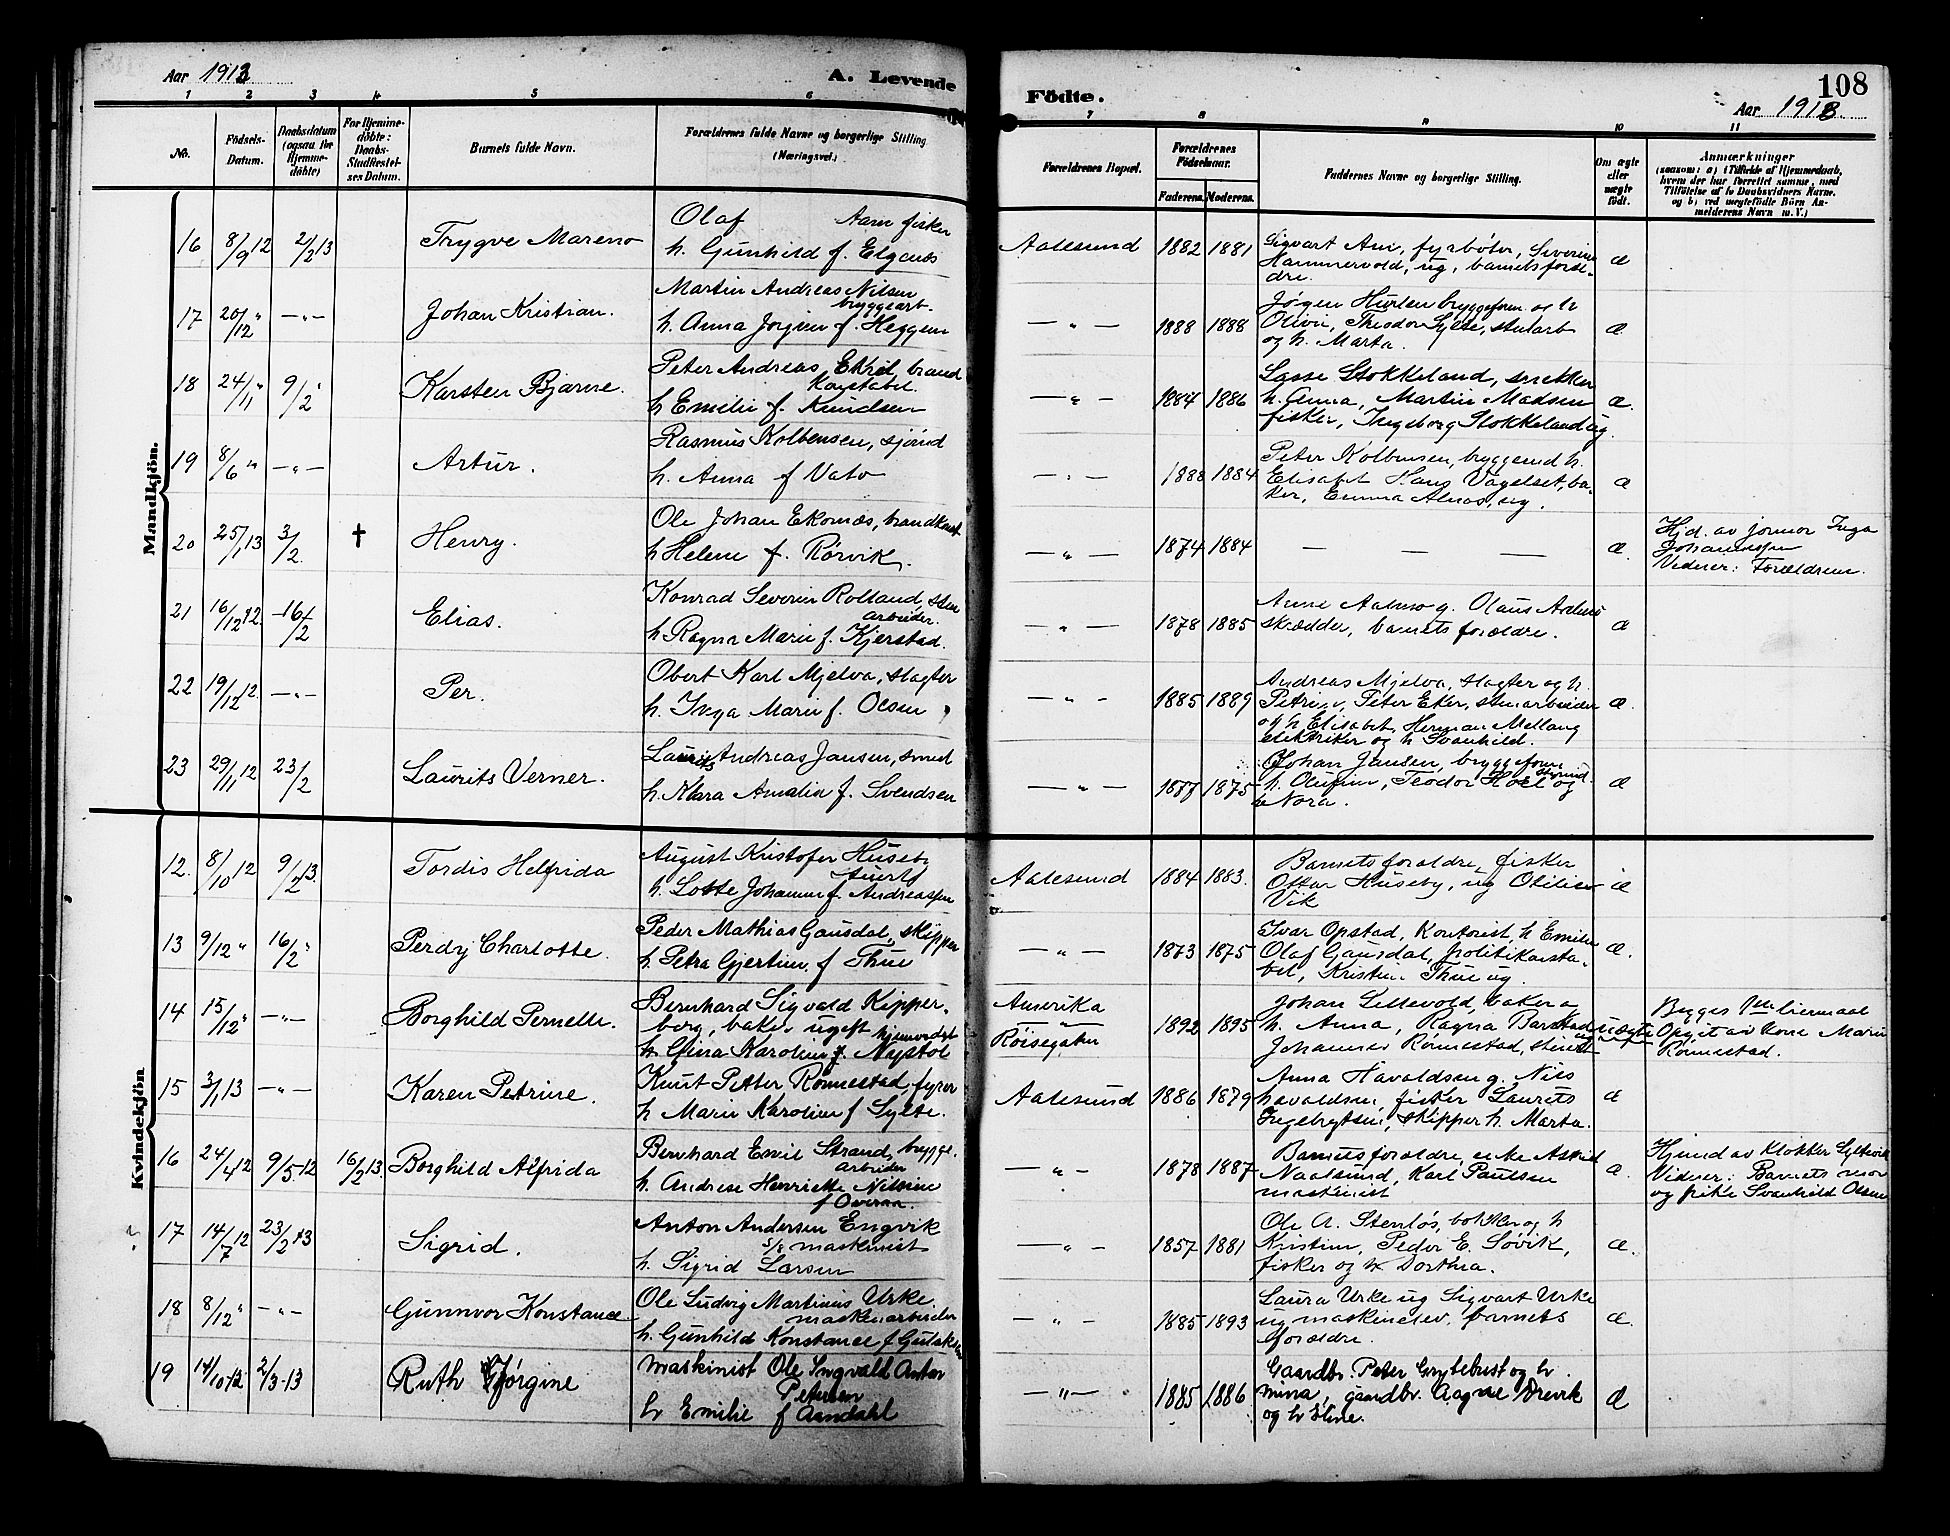 Aar 1913
A. Levende
Födte.
108
Aar 1913
1 2 3 4 5 6 7 8 9 10 11
No.
Födsels-Datum.
Daabsdatum (ogsaa for Hjemme-döbte)
For Hjemme-döbte: Daabs-Stadfæstel-ses Datum.
Barnets fulde Navn.
Forældrenes fulde Navne og borgerlige Stilling (Næringsvei.)
Forældrenes Bopæl.
Forældrenes Födselsaar.
Faderens. Moderens.
Faddernes Navne og borgerlige Stilling.
Om ægte eller uægte födt.
Anmærkninger
(saasom: a) i Tilfælde af Hjemmedaab,
hvem der har forrettet samme, med
Tilföielse af to Daabsvidners Navne,
og b) ved uægtefödte Börn An-
melderens Navn m. V.)
Mandkjön.
16 8/9 12 2/2 13 Trygve Mareno
Olaf Aam fisker
h. Gunhild f. Elgenes
Aalesund 1882 1881
Sigvart Am, fyrböter, Severine
Hammervold, ug, barnets foræl-
dre.
æ
17 20/12 " — " — Johan Kristian.
Martin Andreas Nilsen
bryggearb.
h. Anna Jorgine f. Heggem
— " — 1888 1888
Jörgen Hurlen bryggeform. og h
Olivie, Theodor Sylte, stenarb
og h. Marta.
æ
18 24/11 " 9/2 " Karsten Bjarne.
Peter Andreas Ekrel, brand
konstabel
h Emilie f. Knudsen
— " — 1884 1886
Lasse Stokkeland, snekker
h. Anna, Martin Madsen
fisker, Ingeborg Stokkeland ug.
æ.
19 8/6 " — " — Artur.
Rasmus Kolbensen, sjömd
h. Anna f Vato
— " — 1888 1884
Peter Kolbensen, bryggemd h.
Elisabet Hans Vågelset, ba-
ker, Emma Alnæs, ug.
æ
20 25/1 13 3/2. † Henry.
Ole Johan Ekornæs, brandkonst
h Helene f. Rörvik.
— " — 1874 1884 — — — æ.
Hjd. av jormor Inga
Johannessen
Vidner: Forældrene.
21 16/12 12. 16/2 Elias.
Konrad Severin Rolland, sten
arbeider.
h Ragna Marie f. Kjerstad.
— " — 1878 1885
Anne Aalens g. Olaus Aalens
skrædder, barnets forældre.
æ
22 19/12 12. — " — Per.
Obert Karl Mjelva, slagter
h. Inga Marie f. Olsen
— " — 1885 1889
Andreas Mjelva, slagter og h.
Petrine, Peter Eker, stenarbeider
og h Elisabet, Herman Mellang
elektriker og h Svanhild.
æ.
23 29/11 12 23/2 Laurits Verner.
Laurits Andreas Jansen, smed
h. Klara Amalie f. Svendsen
— " — 1877 1875
Johan Jansen, bryggeform
h. Olufine, Teodor Hoel og
h Nora.
æ
Kvindekjön
12. 8/10 12 9/2 13. Tordis Helfrida
August Kristofer Huseby
h. Lotte Johanne f. Andreassen
Aalesund 1884 1883.
Barnets forældre, fisker
Ottar Huseby, ug Otilie
Vik
æ
13 9/12 " 16/2 " Perdy Charlotte.
Peder Mathias Gausdal, skipper
h. Petra Gjertine f Thue
— " — 1873 1875
Ivar Opstad, Kontorist, h Emilie
Olaf Gausdal, politikonsta-
bel, Kristine Thue ug
æ.
14 15/12 " — " — Borghild Pernelle.
Bernhard Sigvald Kipper-
berg, baker ugift hjemverdst
h. Gina Karoline f. Nystöl
Amerika
— " —
Röisegaten
1892 1895
Johan Lillevold, baker og
h. Anna, Ragna Barstad ug
Johannes Rönnestad,
uægte
Begges 1ste leiermaal
Opgit av kone Marie
Rönnestad.
15 3/1 13 — " — Karen Petrine.
Knut Petter Rönnestad, fyrer
h Marie Karoline f Sylte.
Aalesund 1886 1879
Anna Havaldsen g. Nils
havaldsen, fisker Laurits
Ingebrigtsen, skipper h. Marta.
æ
16 24/4 12 9/5. 12 16/2 13. Borghild Alfrida
Bernhard Emil Strand, brygge-
arbeider
h. Andrea Henriette Nilsine
f Overaa.
— " — 1878 1887
Barnets forældre, enke Astrid
Naalsund, Karl Paulsen
maskinist
æ.
Hjemd av Klokker Syltevik
Vidner: Barnets mor
og pike Svanhild Olsen
17 14/7 12 23/2 13 Sigrid.
Anton Andersen Engvik
s/s maskinist
h. Sigrid Larsen
— " — 1857 1881
Ole A. Stenlös, bøkker og h
Kristine, Peder E. Sövik,
fisker og h Dorthea.
æ.
18 8/12 " — " — Gunnvor Konstance
Ole Ludvig Martinius Urke
maskinarbeider
h. Gunhild Konstance f Gulaksen
— " — 1885 1893
Laura Urke ug Sigvart Urke
ug maskinelev, barnets
forældre.
æ.
19 14/10 12 2/3-13 Ruth Jørgine
maskinist Ole Ingvald Anton
Petersen
h Emilie f Aandahl
— " — 1885 1886
Gaardbr. Peter Grytebust og h
Mina, gaardbr. Aagne Drevik
og h Stine.
æ